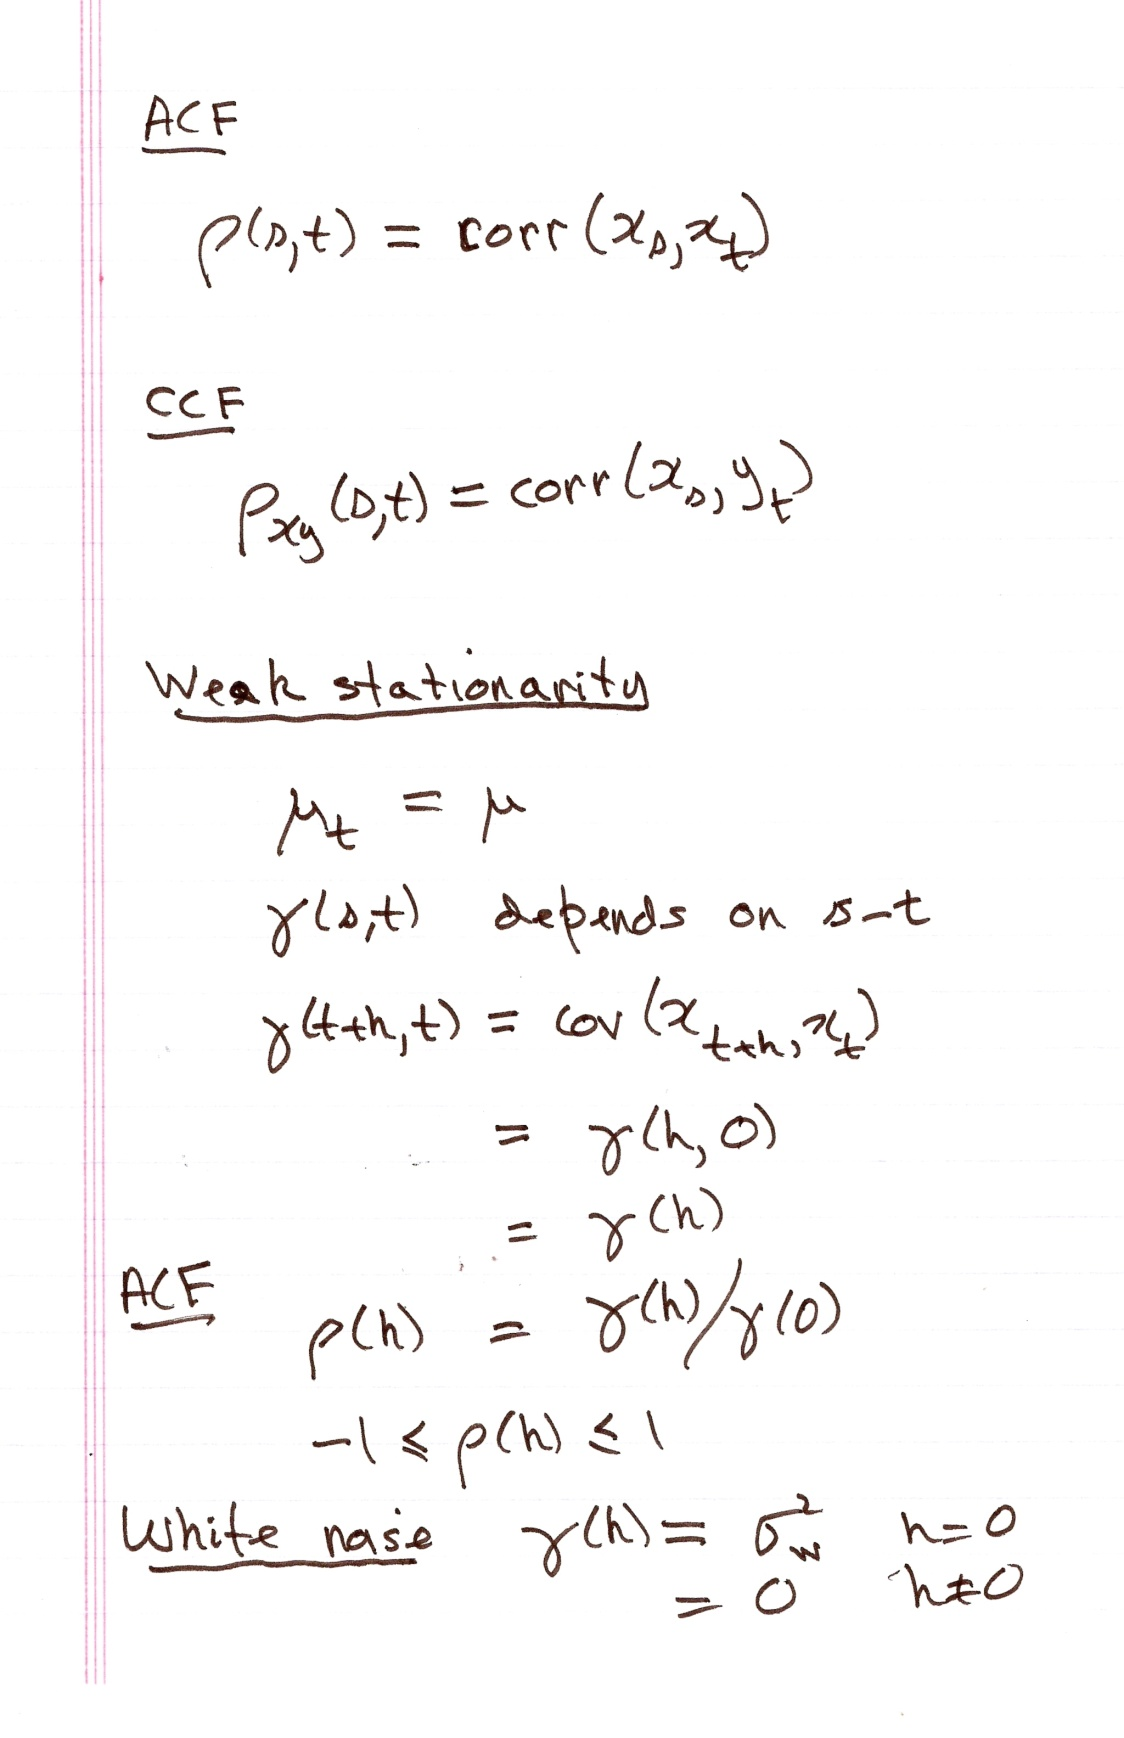 ACF
ρ(s,t) = corr(x_s, x_t)
CCF
ρ_xy(s,t) = corr(x_s, y_t)
Weak stationarity
μ_t = μ
γ(s,t) depends on s-t
γ(t+h,t) = cov(x_t+h, x_t)
= γ(h,0)
= γ(h)
ACF ρ(h) = γ(h)/γ(0)
-1 ≤ ρ(h) ≤ 1
White noise γ(h) = σ²_w h=0
= 0 h≠0